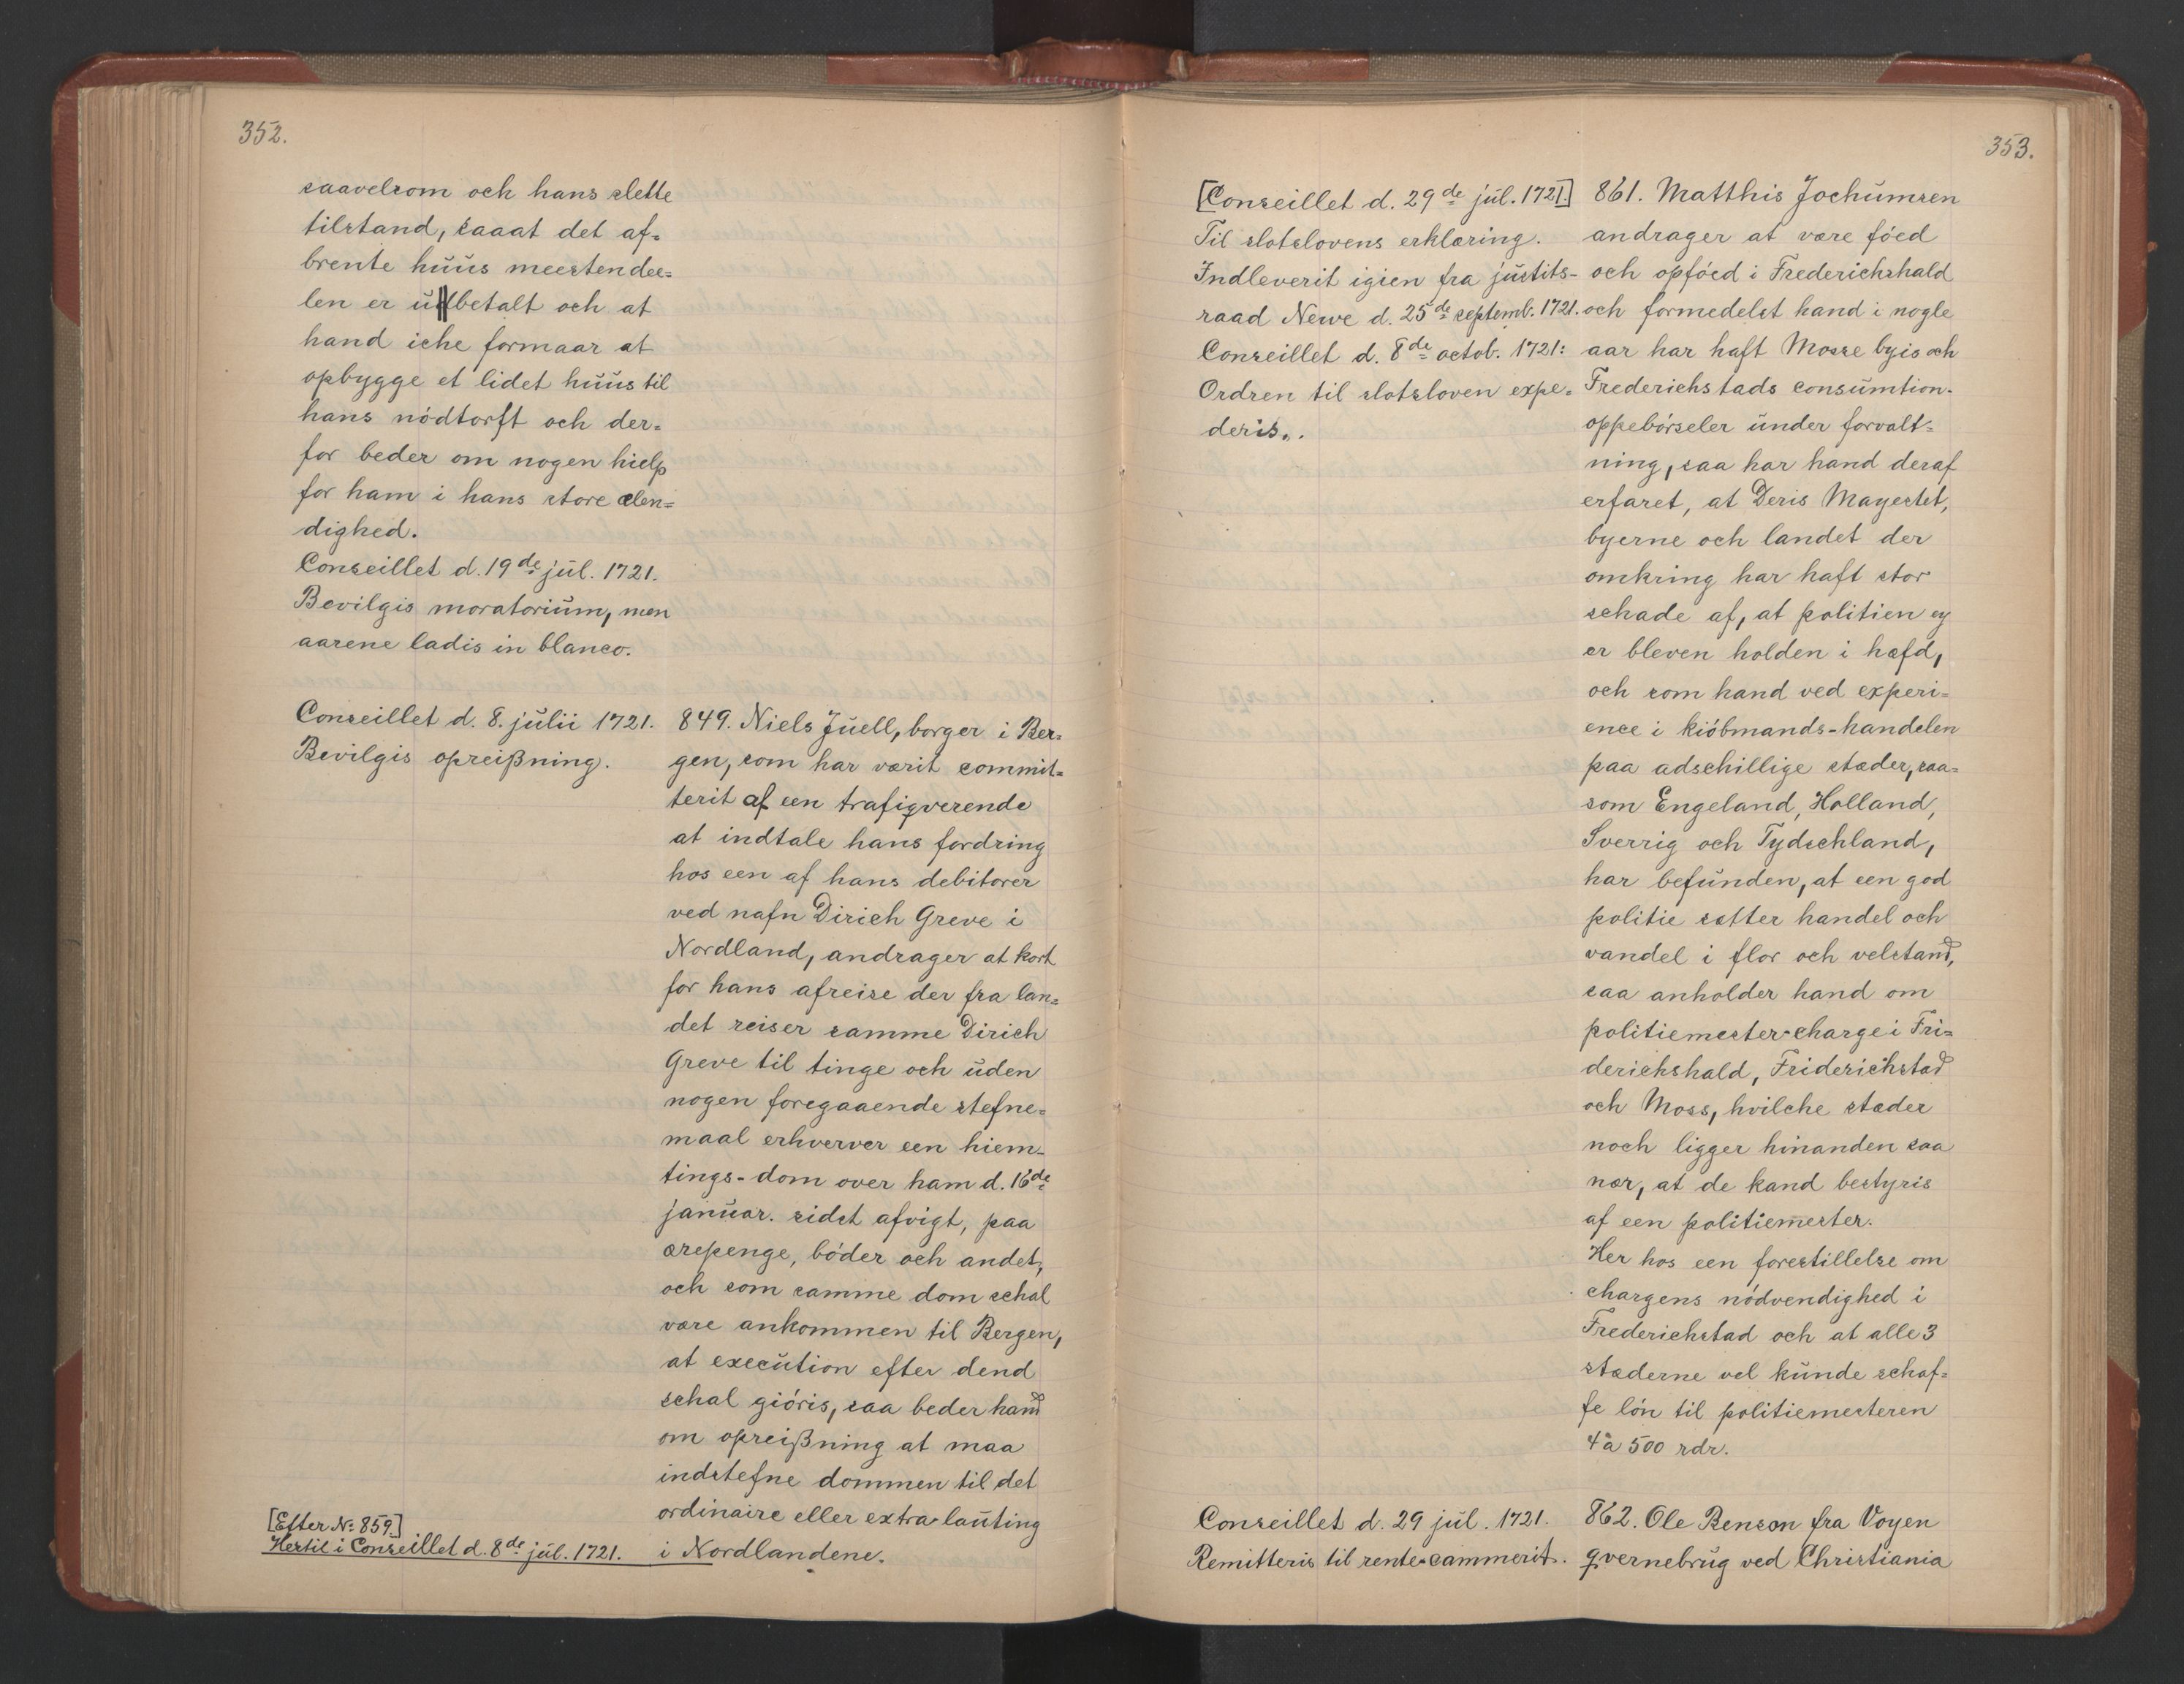 352.
saavelsom och hans slette
tilstand, saaat det af-
brente huus meestendee-
len er ubetalt och at
hand iche formaar at
opbygge et lidet huus til
hans nödtorft och der-
for beder om nogen hielp
for ham i hans store elen-
dighed.
Conseillet d. 19de jul. 1721.
Bevilgis moratorium, men
aarene ladis in blanco.
Conseillet d. 8. julii 1721.
Bevilgis opreißning.
849. Niels Juell, borger i Ber-
gen, som har værit commit-
terit af een trafiqverende
at indtale hans fordring
hos een af hans debitorer
ved nafn Dirich Greve i
Nordland, andrager at kort
for hans afreise der fra lan-
det reiser samme Dirich
Greve til tinge och uden
nogen foregaaende stefne-
maal erhverver een hiem-
tings-dom over ham d. 16de
januar. sidst afvigt, paa
ærepenge, böder och andet,
och som samme dom schal
være ankommen til Bergen,
at execution efter dend
schal giöris, saa beder hand
om opreißning at maa
indstefne dommen til det
ordinaire eller extra-lauting
i Nordlandene.
[Efter No 859.]
Hertil i Conseillet d. 8de jul. 1721.
353.
[Conseillet d. 29de jul. 1721.]
Til slotslovens erklæring.
Indleverit igien fra justits-
raad Neve d. 25de septemb. 1721.
Conseillet d. 8de octob. 1721:
Ordren til slotsloven expe-
deris..
861. Matthis Jochumsen
andrager at være föed
och opföed i Frederichshald
och formedelst hand i nogle
aar har haft Mosse byis och
Frederichstads consumtion-
oppebörseler under forvalt-
ning, saa har hand deraf
erfaret, at Deris Mayestet,
byerne och landet der
omkring har haft stor
schade af, at politien ey
er bleven holden i hæfd,
och som hand ved experi-
ence i kiöbmands-handelen
paa adschillige stæder, saa-
som Engeland, Holland,
Sverrig och Tydschland,
har befunden, at een god
politie sætter handel och
vandel i flor och velstand,
saa anholder hand om
politiemester-charge i Fri-
derichshald, Friderichstad
och Moss, hvilche stæder
noch ligger hinanden saa
nær, at de kand bestyris
af een politiemester.
Her hos een forestillelse om
chargens nödvendighed i
Frederichstad och at alle 3
stæderne vel kunde schaf-
fe lön til politiemesteren
4 à 500 rdr.
Conseillet d. 29 jul. 1721.
Remitteris til rente-cammerit.
862. Ole Benson fra Voyen
qvernebrug ved Christiania